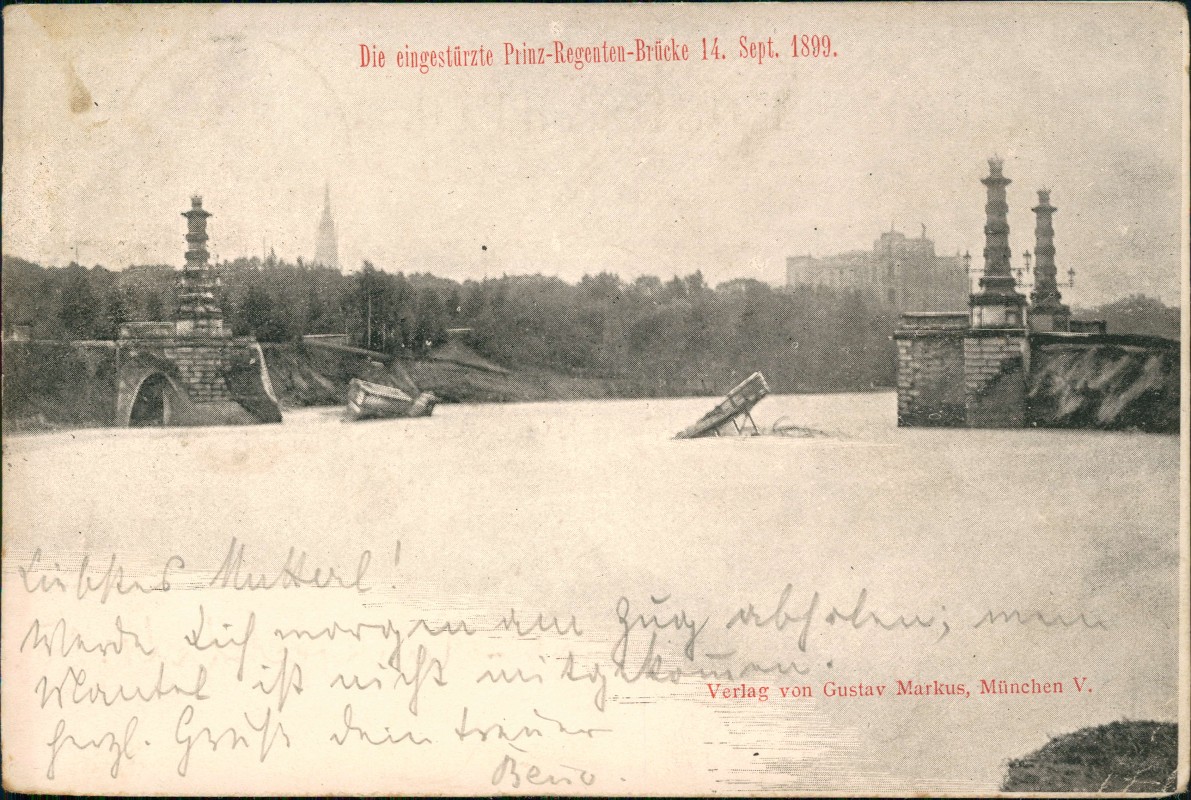 Die eingestürzte Prinz-Regenten-Brücke 14. Sept. 1899.
Liebstes Mutterl!
Werde Dich morgen am Zug abholen; mein
Mantel ist nicht mitgekom̅en.
Verlag von Gustav Markus, München V.
herzl. Gruß dein treuer